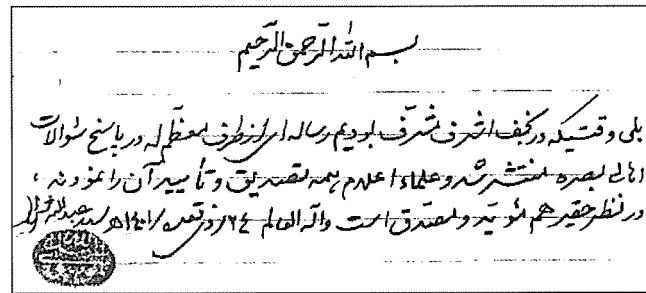 بسم الله الرحمن الرحیم
بلی وقتیکه در نجف اشرف مشرف بودیم رساله ای از طرف معظم له در پاسخ سئوالات
اهالی بصره منتشر شد و علماء اعلام همه تصدیق و تأیید آن را نمودند ،
در نظر حقیر هم مؤید و مصدق است والله العالم ۲٤ ذی قعده ۱٤۰۱ه سید عبدالله